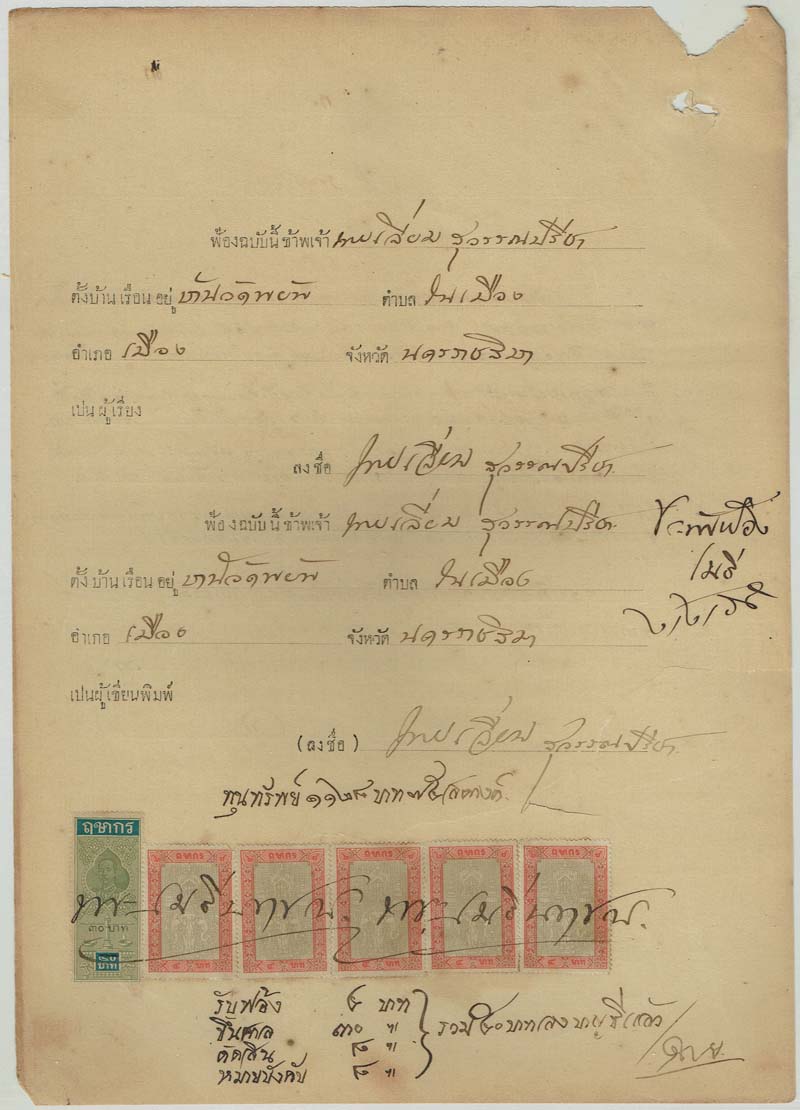 ฟ้องฉบับนี้ข้าพเจ้า นายเลี่ยม สุวรรณปรีชา
ตั้งบ้านเรือนอยู่ บ้านวัดพยัพ ตำบล ในเมือง
อำเภอ เมือง จังหวัด นครราชสิมา
เปนผู้เรียง
ลงชื่อ นายเลี่ยม สุวรรณปรีชา
ฟ้องฉบับนี้ข้าพเจ้า นายเลี่ยม สุวรรณปรีชา
ตั้งบ้านเรือนอยู่ บ้านวัดพยัพ ตำบล ในเมือง
อำเภอ เมือง จังหวัด นครราชสิมา
เปนผู้เขียนพิมพ์
(ลงชื่อ) นายเลี่ยม สุวรรณปรีชา
ทุนทรัพย์ ๑๑๒๘ บาท ๗๕ สตางค์
ฤชากร ฤชากร ฤชากร ฤชากร ฤชากร ฤชากร
๓๐ บาท
๒๐ บาท ๘ บาท ๘ บาท ๘ บาท ๘ บาท ๘ บาท
รับฟ้อง ๕ บาท
ขึ้นศาล ๓๐ ฯ
ตัดสิน
หมายบังคับ
รวม ๕๐ บาท ลงบาญชีแล้ว